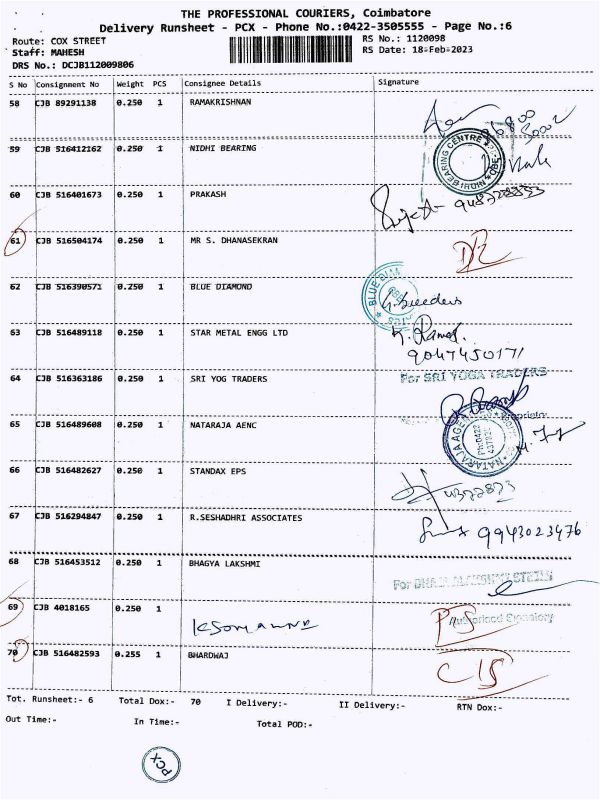 THE PROFESSIONAL COURIERS, Coimbatore
Delivery Runsheet - PCX - Phone No.:0422-3505555 - Page No.:6
Route: COX STREET RS No.: 1120098
Staff: MAHESH RS Date: 18-Feb-2023
DRS No.: DCJB112009806
S No Consignment No Weight PCS Consignee Details Signature
58 CJB 89291138 0.250 1 RAMAKRISHNAN
59 CJB 516412162 0.250 1 NIDHI BEARING
NIDHI BEARING CENTRE
60 CJB 516401673 0.250 1 PRAKASH
61 CJB 516504174 0.250 1 MR S. DHANASEKRAN
62 CJB 516390571 0.250 1 BLUE DIAMOND
63 CJB 516489118 0.250 1 STAR METAL ENGG LTD
9047450171
64 CJB 516363186 0.250 1 SRI YOG TRADERS For SRI YOGA TRADERS
Proprietor
65 CJB 516489608 0.250 1 NATARAJA AENC
66 CJB 516482627 0.250 1 STANDAX EPS
67 CJB 516294847 0.250 1 R.SESHADHRI ASSOCIATES 9943023476
68 CJB 516453512 0.250 1 BHAGYA LAKSHMI
69 CJB 4018165 0.250 1
Authorised Signatory
70 CJB 516482593 0.255 1 BHARDWAJ
Tot. Runsheet:- 6 Total Dox:- 70 I Delivery:- II Delivery:- RTN Dox:-
Out Time:- In Time:- Total POD:-
PCX